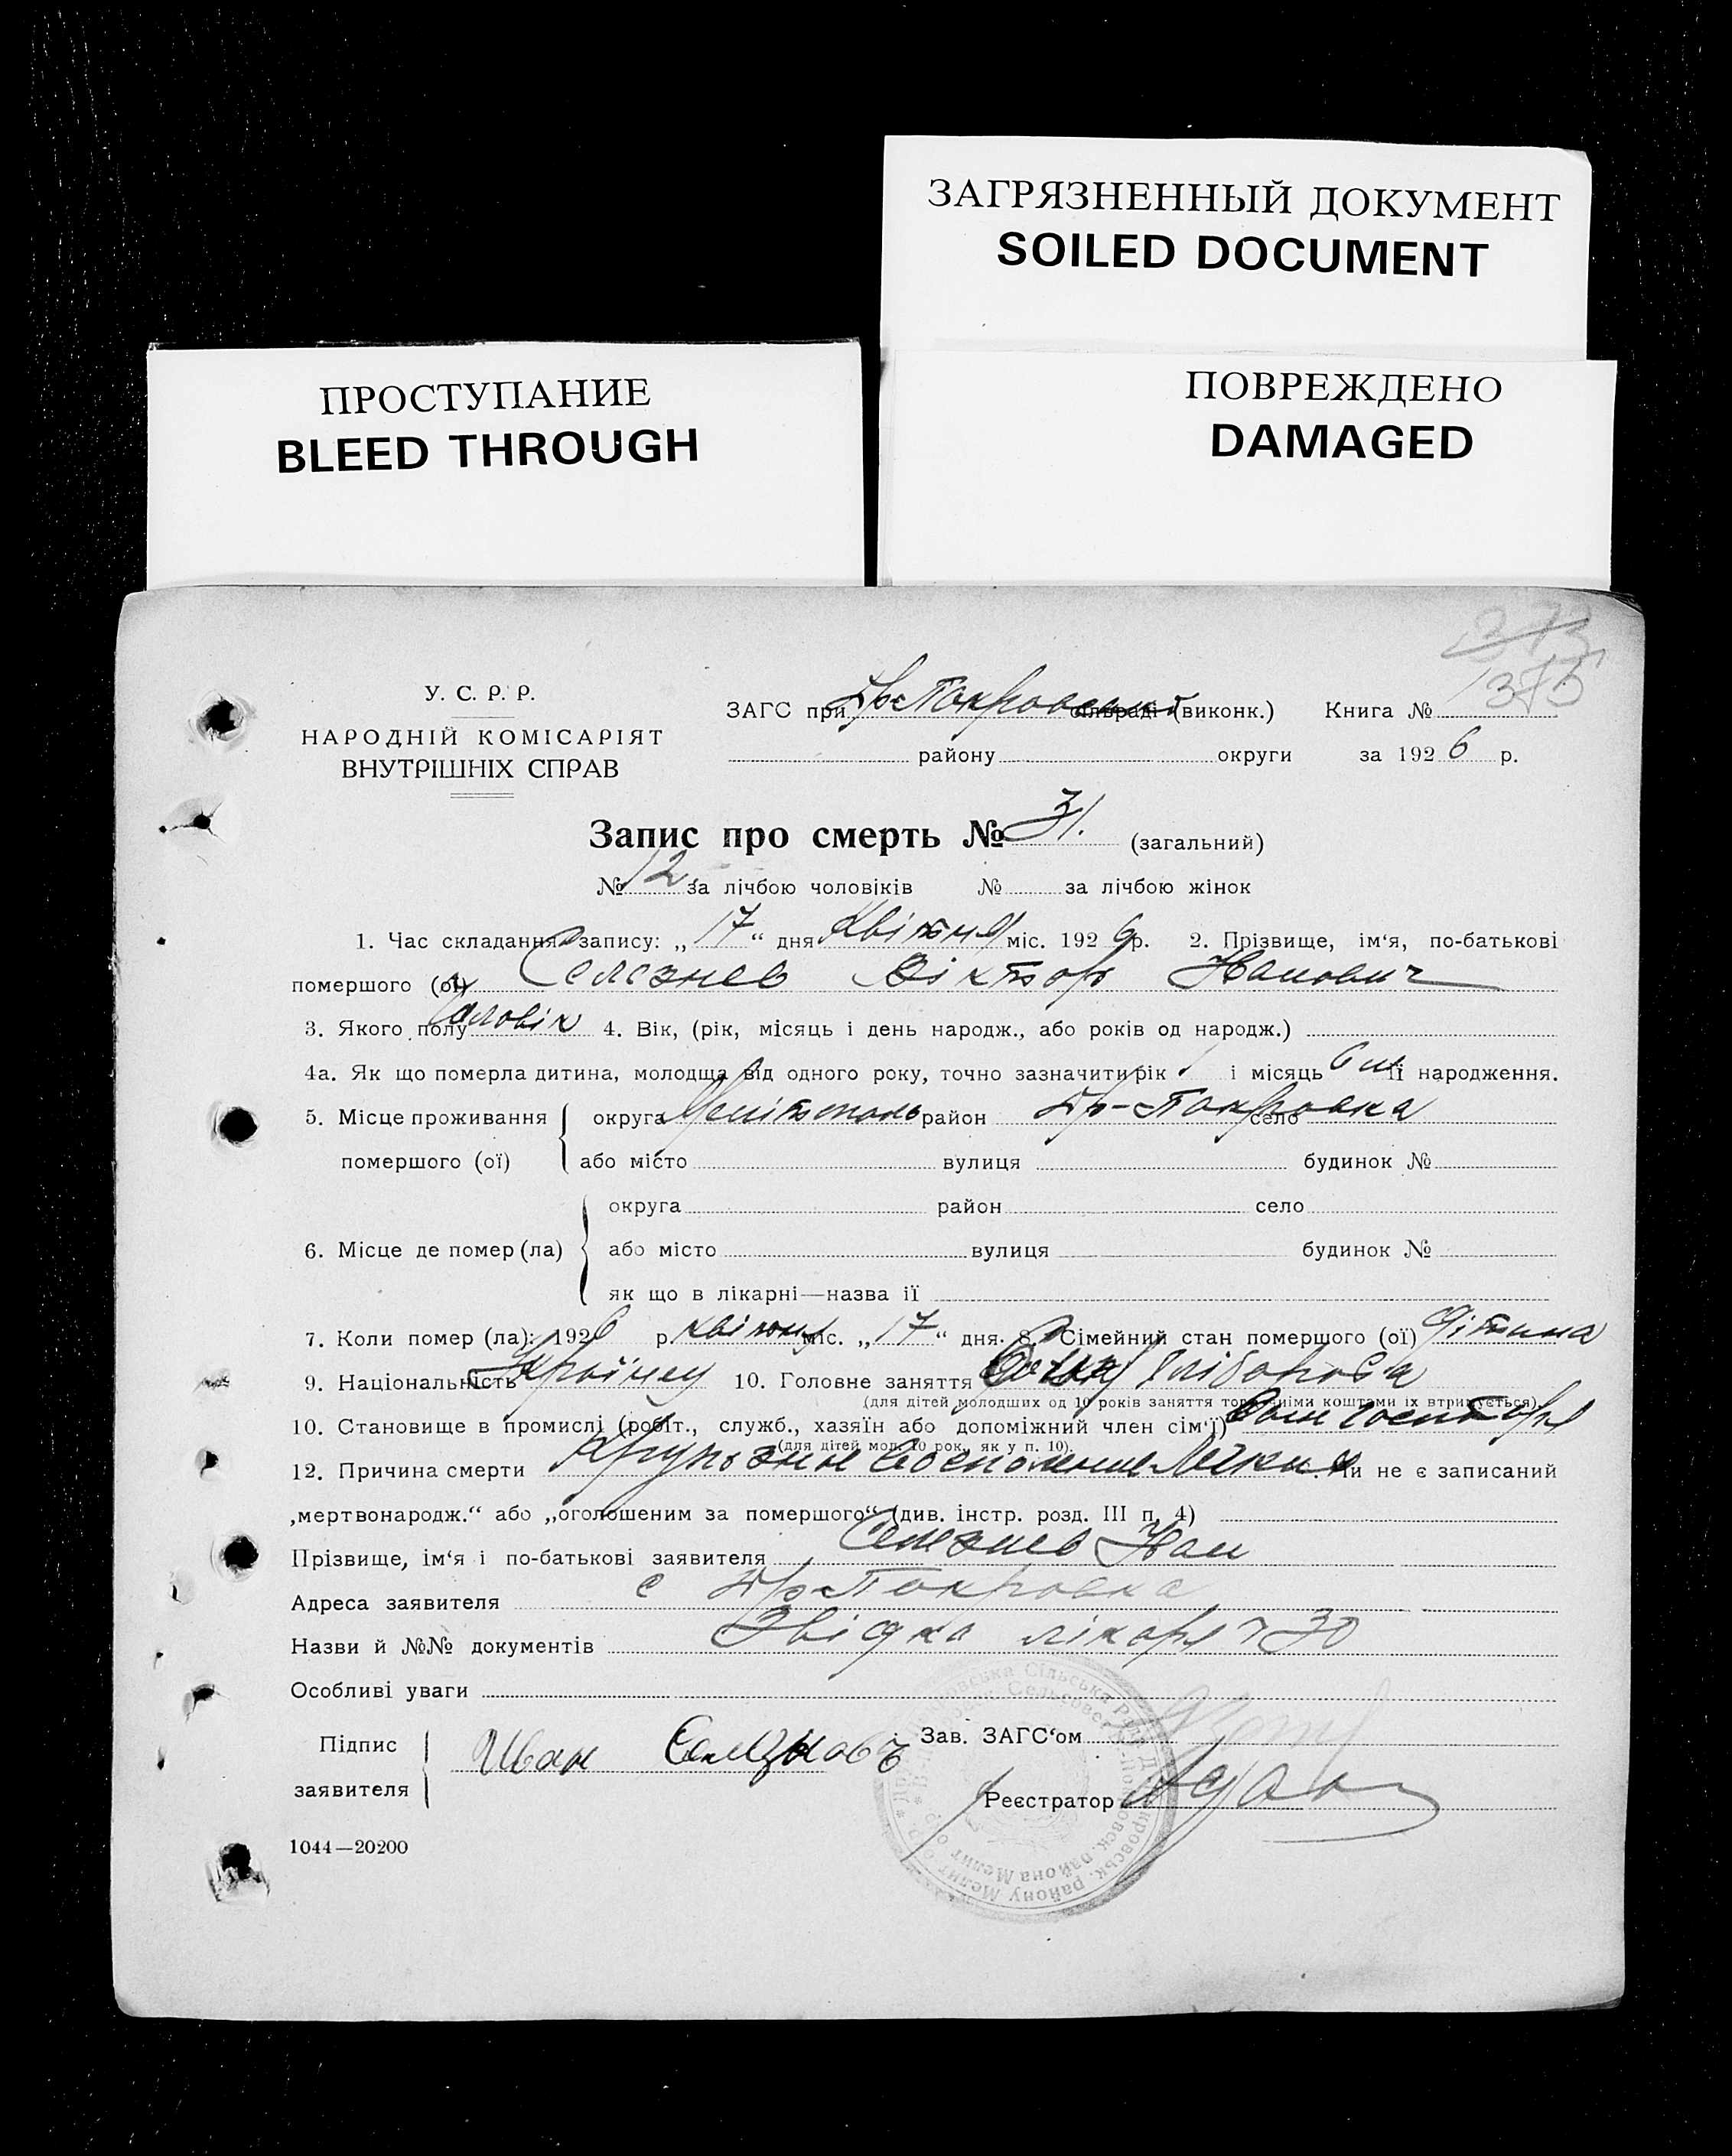 ЗАГРЯЗНЕННЫЙ ДОКУМЕНТ
SOILED DOCUMENT
ПРОСТУПАНИЕ
BLEED THROUGH
ПОВРЕЖДЕНО
DAMAGED
373
375
У. С. Р. Р.
НАРОДНІЙ КОМІСАРІЯТ
ВНУТРІШНІХ СПРАВ
ЗАГС при Др-Покровській (виконк.) Книга №
району округи за 1926 р.
Запис про смерть № 31. (загальний)
№ 12 за лічбою чоловіків № за лічбою жінок
1. Час складання запису: „17“ дня Квітня міс. 1926 р. 2. Прізвище, ім‘я, по-батькові
помершого (ої) Селезнев Віктор Іванович
3. Якого полу чоловік 4. Вік, (рік, місяць і день народж., або років од народж.)
4а. Як що померла дитина, молодща від одного року, точно зазначити рік 1 і місяць 6 м її народження.
5. Місце проживання помершого (ої) округа Мелітополь район Др-Покровка село
або місто вулиця будинок №
6. Місце де помер (ла) округа район село
або місто вулиця будинок №
як що в лікарні—назва її
7. Коли помер (ла): 1926 р. квітня міс. „17“ дня. 8. Сімейний стан помершого (ої) дітина
9. Національність Українец 10. Головне заняття хлібороба
(для дітей молодших од 10 років заняття того, чиїми коштами їх втримується)
10. Становище в промислі (робіт., служб., хазяїн або допоміжний член сім‘ї)
(для дітей мол. 10 рок., як у п. 10).
12. Причина смерти Крупозное Воспаление Легких Чи не є записаний
„мертвонародж.“ або „оголошеним за помершого“ (див. інстр. розд. III п. 4)
Прізвище, ім‘я і по-батькові заявителя Селезнев Іван
Адреса заявителя с Др-Покровка
Назви й №№ документів Звідка лікаря № 30
Особливі уваги
Підпис заявителя Иван Селезновъ Зав. ЗАГС‘ом
Реєстратор
1044—20200